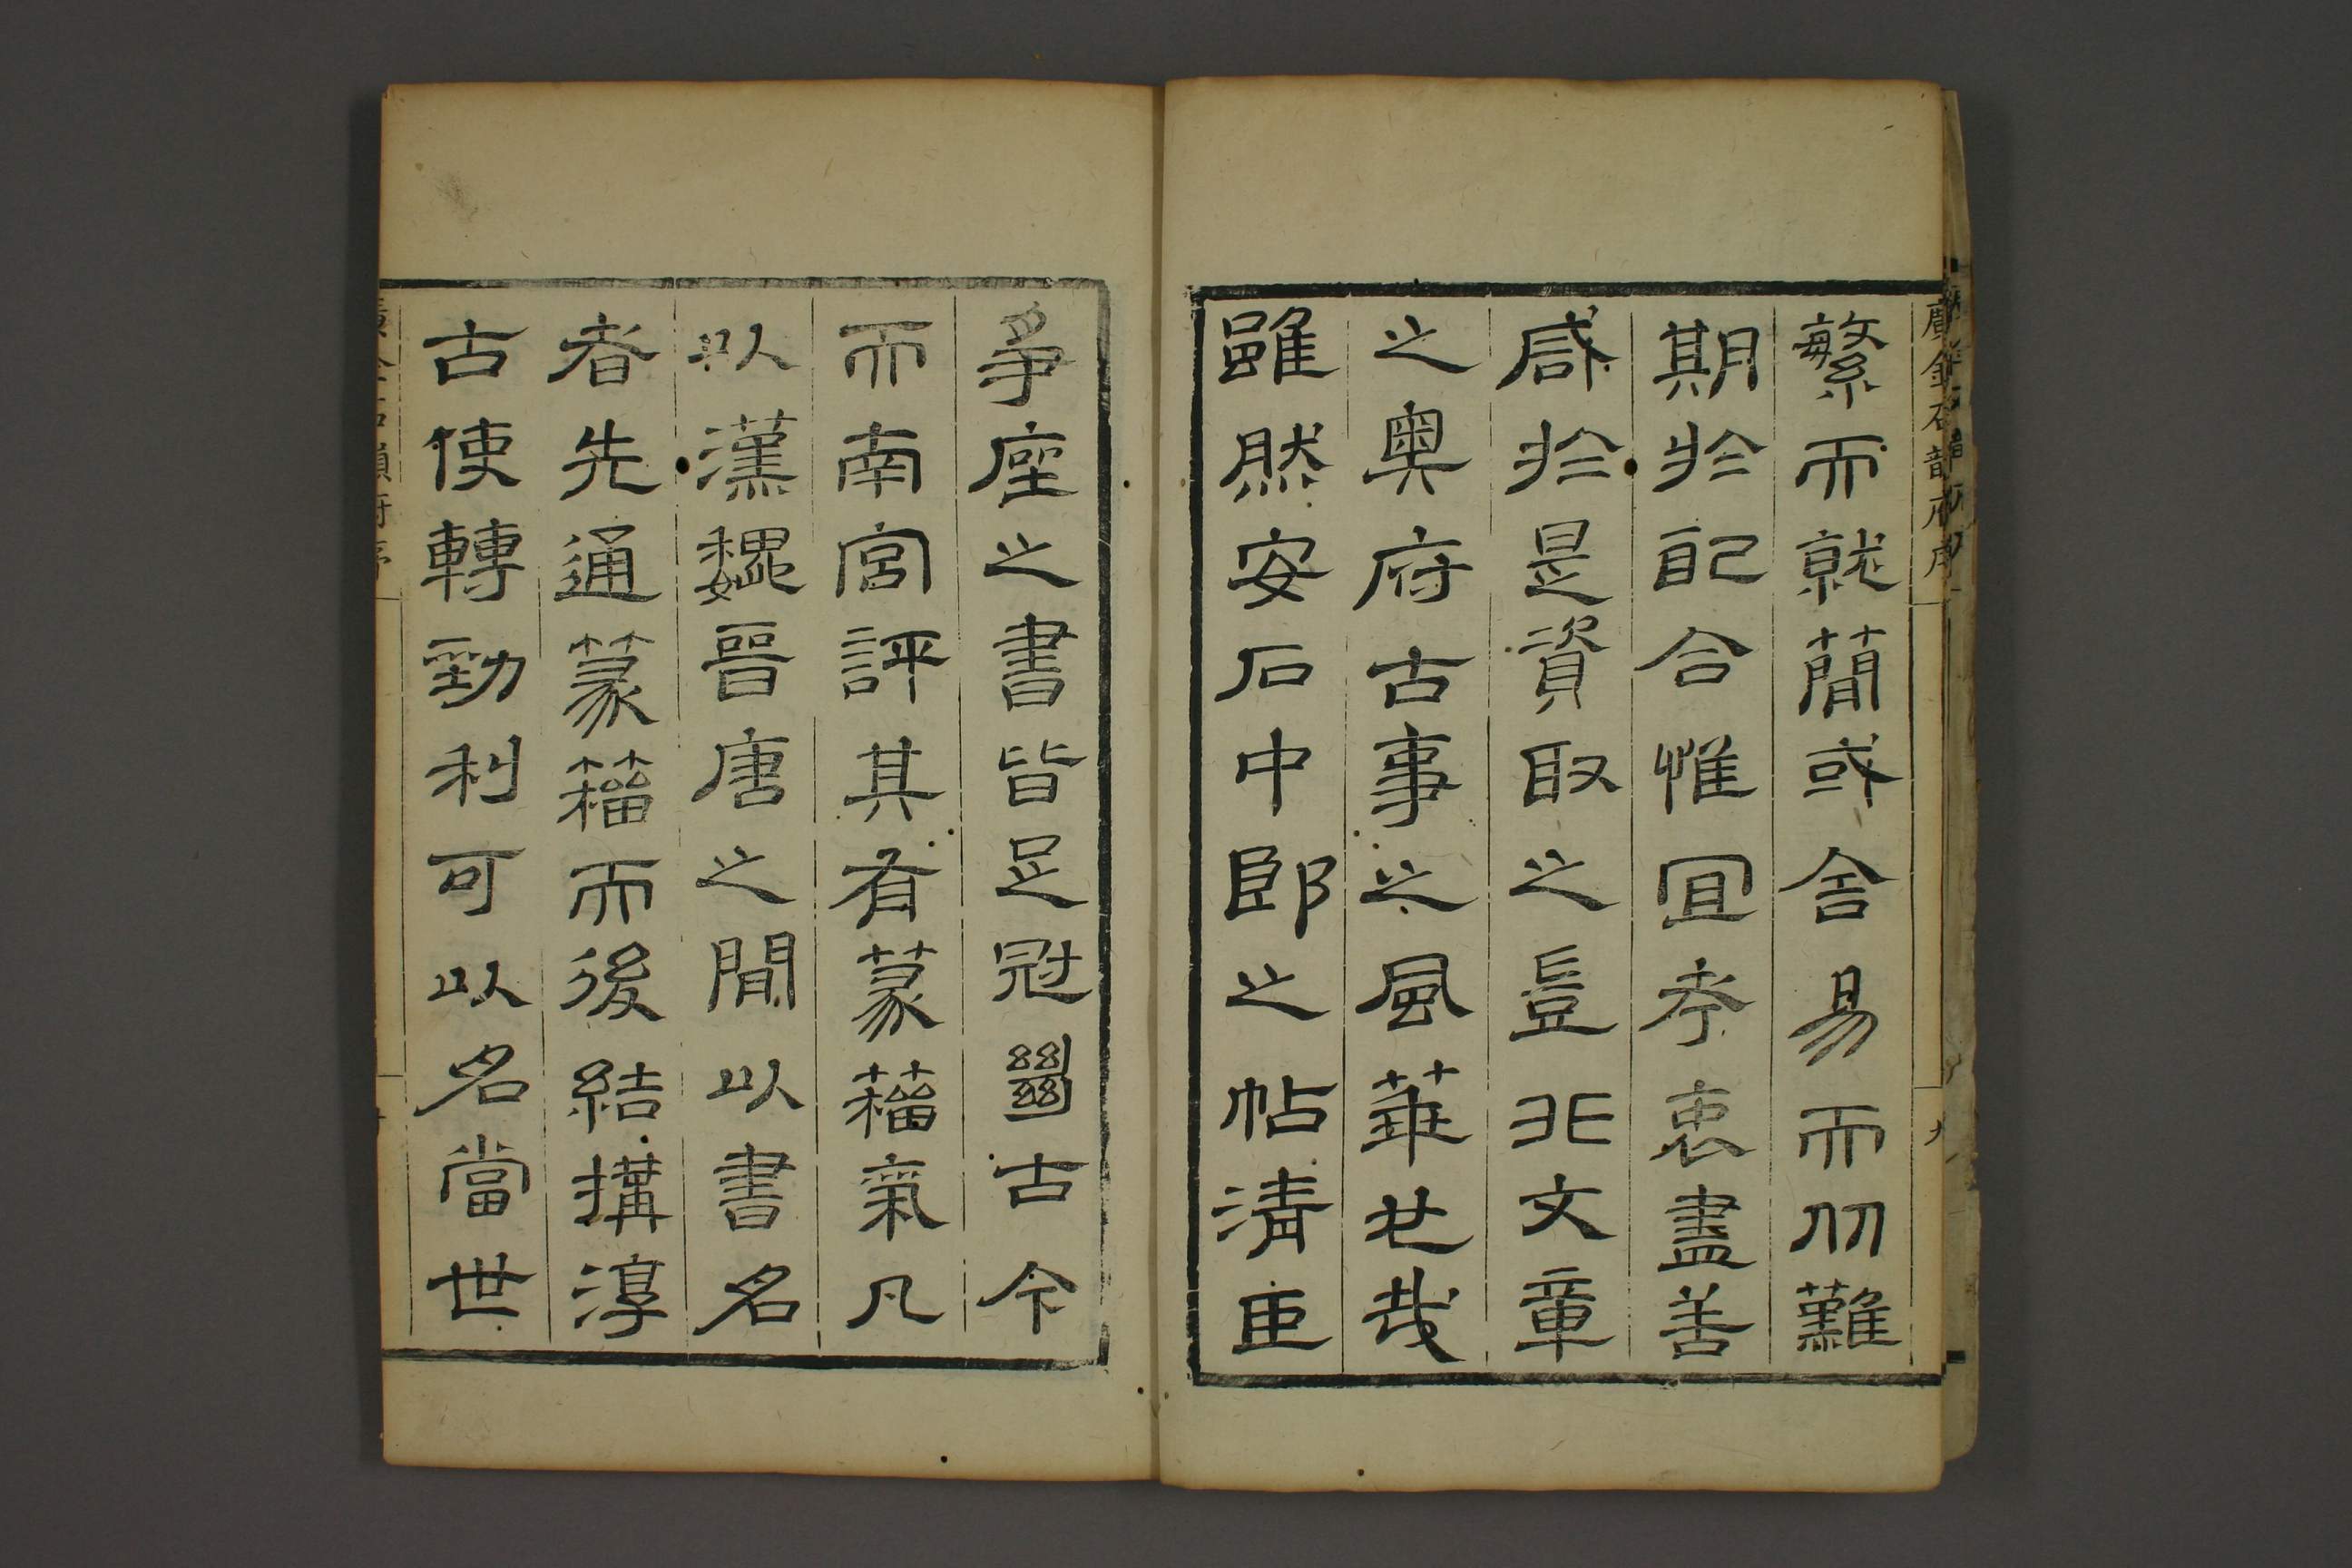 廣金石韻府序
繁而就簡或舍易而仍難
期於配合惟宜考衷盡善
咸於是資取之豈非文章
之奥府古事之風華也哉
雖然安石中郎之帖清臣
爭座之書皆足冠豳古今
而南宮評其有篆籀氣凡
以漢魏晉唐之間以書名
者先通篆籀而後結搆淳
古使轉勁利可以名當世